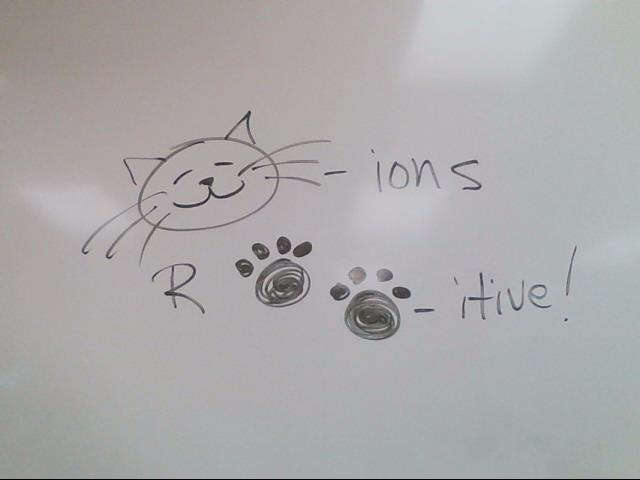 -ions
R -itive!